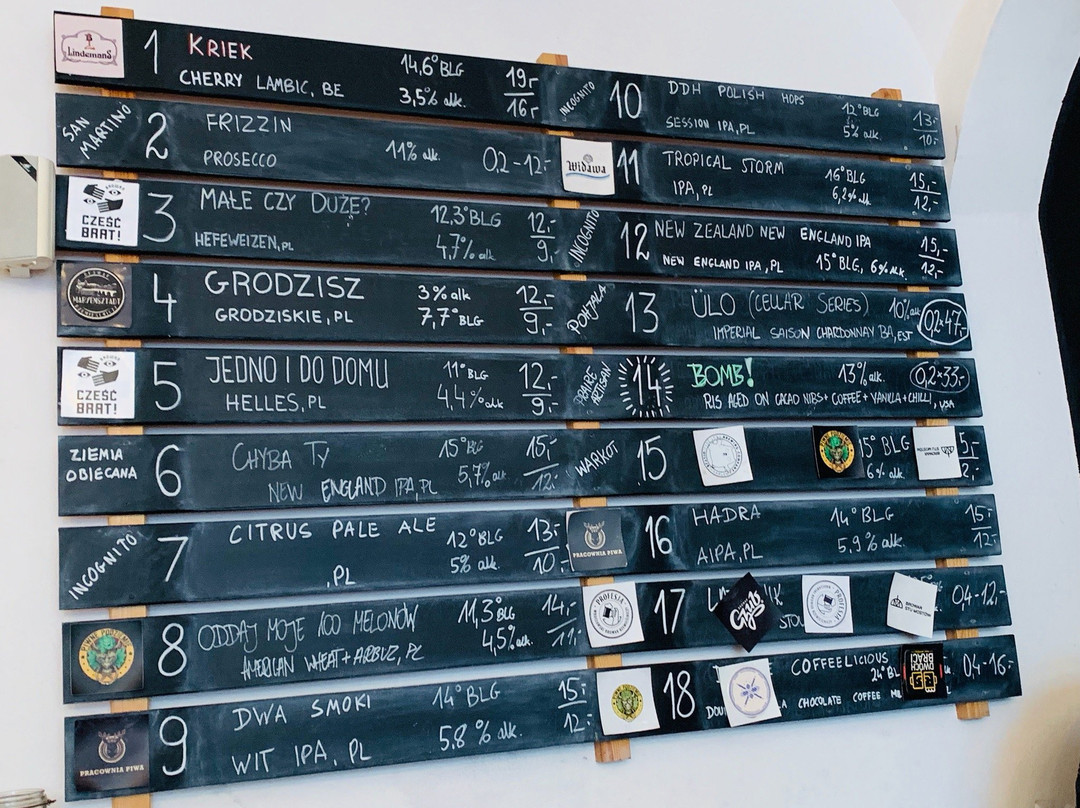 Lindemans
1 KRIEK 14,6° BLG 19,-
CHERRY LAMBIC, BE 3,5% alk. 16,-
SAN MARTINO
2 FRIZZIN
PROSECCO 11% alk. 0,2-12,-
CZEŚĆ BRAT!
3 MAŁE CZY DUŻE? 12,3° BLG 12,-
HEFEWEIZEN, PL 4,7% alk. 9,-
MARYENSZTADT
4 GRODZISZ 3% alk 12,-
GRODZISKIE, PL 7,7° BLG 9,-
CZEŚĆ BRAT!
5 JEDNO I DO DOMU 11° BLG 12,-
HELLES, PL 4,4% alk 9,-
ZIEMIA OBIECANA
6 CHYBA TY 15° BLG 15,-
NEW ENGLAND IPA, PL 5,7% alk 12,-
INCOGNITO
7 CITRUS PALE ALE 12° BLG 13,-
, PL 5% alk. 10,-
8 ODDAJ MOJE 100 MELONÓW 11,3° BLG 14,-
AMERICAN WHEAT + ARBUZ, PL 4,5% alk. 11,-
PRACOWNIA PIWA
9 DWA SMOKI 14° BLG 15,-
WIT IPA, PL 5,8 % alk. 12,-
INCOGNITO
10 DDH POLISH HOPS 12° BLG 13,-
SESSION IPA, PL 5% alk. 10,-
Widawa
11 TROPICAL STORM 16° BLG 15,-
IPA, PL 6,2% alk. 12,-
INCOGNITO
12 NEW ZEALAND NEW ENGLAND IPA 15,-
NEW ENGLAND IPA, PL 15° BLG, 6% alk. 12,-
POHJALA
13 ÜLO (CELLAR SERIES) 10% alk 0,2-47,-
IMPERIAL SAISON CHARDONNAY BA, EST
PRAIRE ARTISAN
14 BOMB! 13% alk. 0,2-33,-
RIS AGED ON CACAO NIBS + COFFEE + VANILLA + CHILLI, USA
WARKOT
15 5° BLG 5,-
6% alk. 2,-
PRACOWNIA PIWA
16 HADRA 14° BLG 15,-
AIPA, PL 5,9% alk. 12,-
PROFESJA
17 Gzub PROFESJA BROWAR STU MOSTÓW 0,4-12,-
18 COFFEELICIOUS 24° BL DWÓCH BRACI 0,4-16,-
CHOCOLATE COFFEE